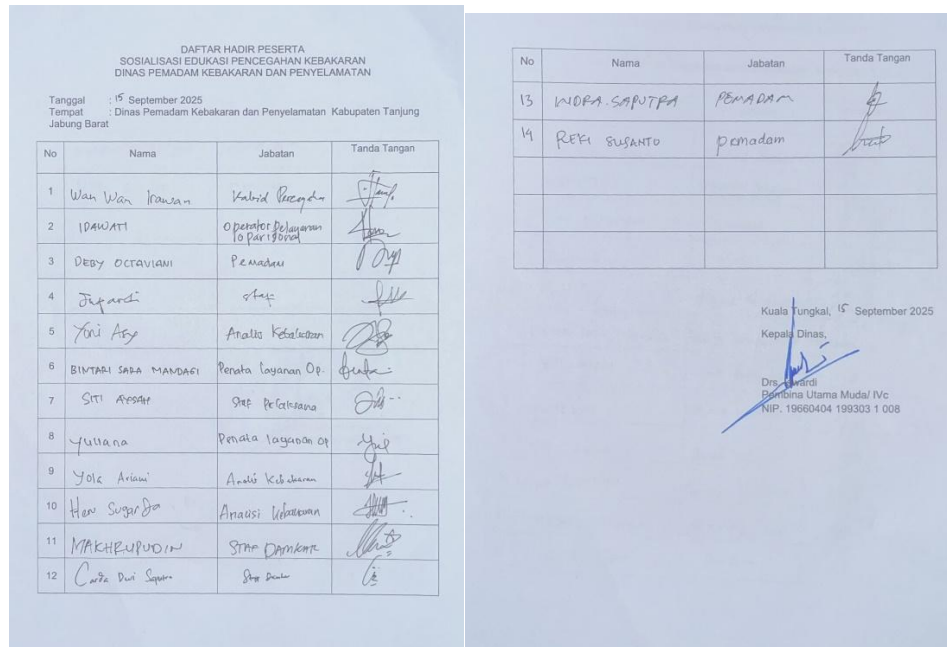 DAFTAR HADIR PESERTA
SOSIALISASI EDUKASI PENCEGAHAN KEBAKARAN
DINAS PEMADAM KEBAKARAN DAN PENYELAMATAN
Tanggal : 15 September 2025
Tempat : Dinas Pemadam Kebakaran dan Penyelamatan Kabupaten Tanjung
Jabung Barat
No Nama Jabatan Tanda Tangan
1 Wan Wan Irawan Kabid
2 IDAWATI Operator Pelayanan
Oparisonal
3 DEBY OCTAVIANI Pemadam
4 Jupardi staf
5 Yoni Analis Kebakaran
6 BINTARI SARA MANDAGI Penata layanan Op.
7 SITI AYSAH Staf Pelaksana
8 Yuliana Penata layanan Op
9 Yola Ariani Analis Kebakaran
10 Heru Sugarda Anausi Kebakaran
11 MAKHRUPUDIN STAF DAMKAR
12 Dwi Saputra
No Nama Jabatan Tanda Tangan
13 INDRA SAPUTRA PEMADAM
14 REKI SUSANTO pemadam
Kuala Tungkal, 15 September 2025
Kepala Dinas,
Drs.
Pembina Utama Muda/ IVc
NIP. 19660404 199303 1 008